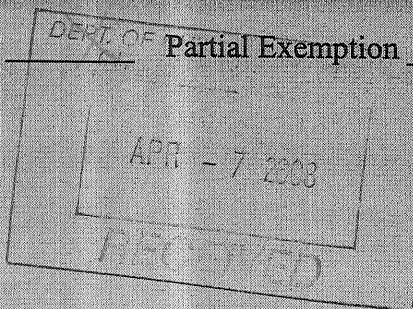 DEPT. OF
Partial Exemption
APR - 7 2008
RECEIVED